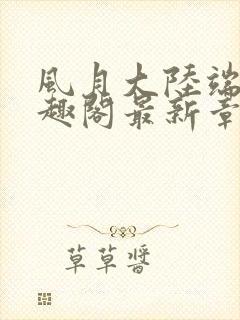 風月大陸端
趣閣最新章
草草醬